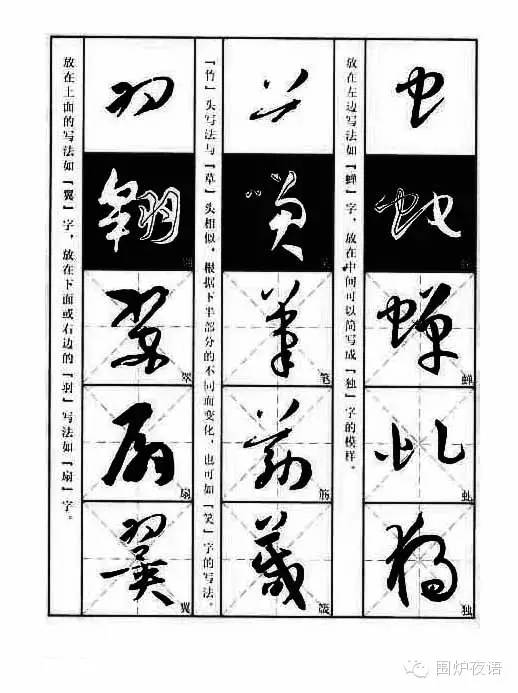 虫
蝉
虬
独
放在左边写法如「蝉」字，放在中间可以简写成「独」字的模样。
笔
筋
箴
「竹」头写法与「草」头相似，根据下半部分的不同而变化，也可如「笑」字的写法。
羽
翠
扇
翼
放在上面的写法如「翼」字，放在下面或右边的「羽」写法如「扇」字。
围炉夜语